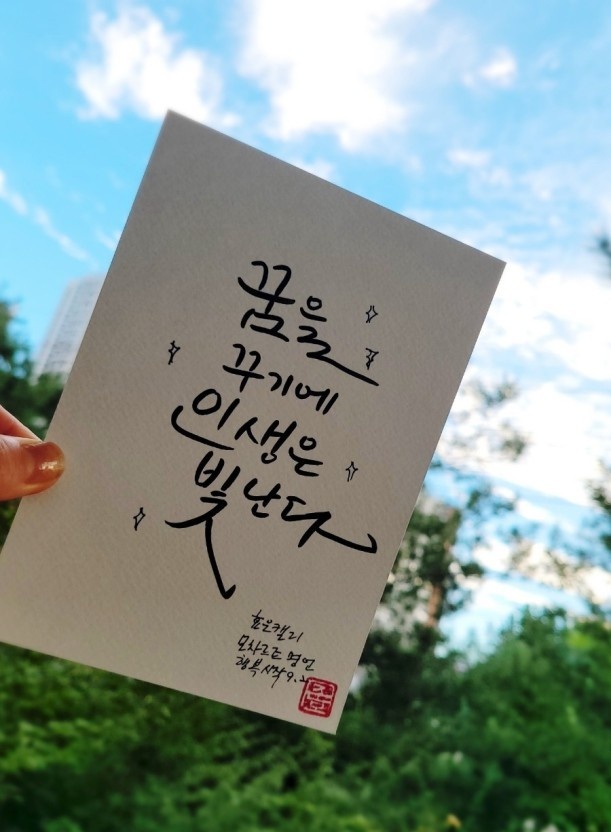 꿈을
꾸기에
인생은
빛난다
효은캘리
모차르트 명언
행복시작9.2